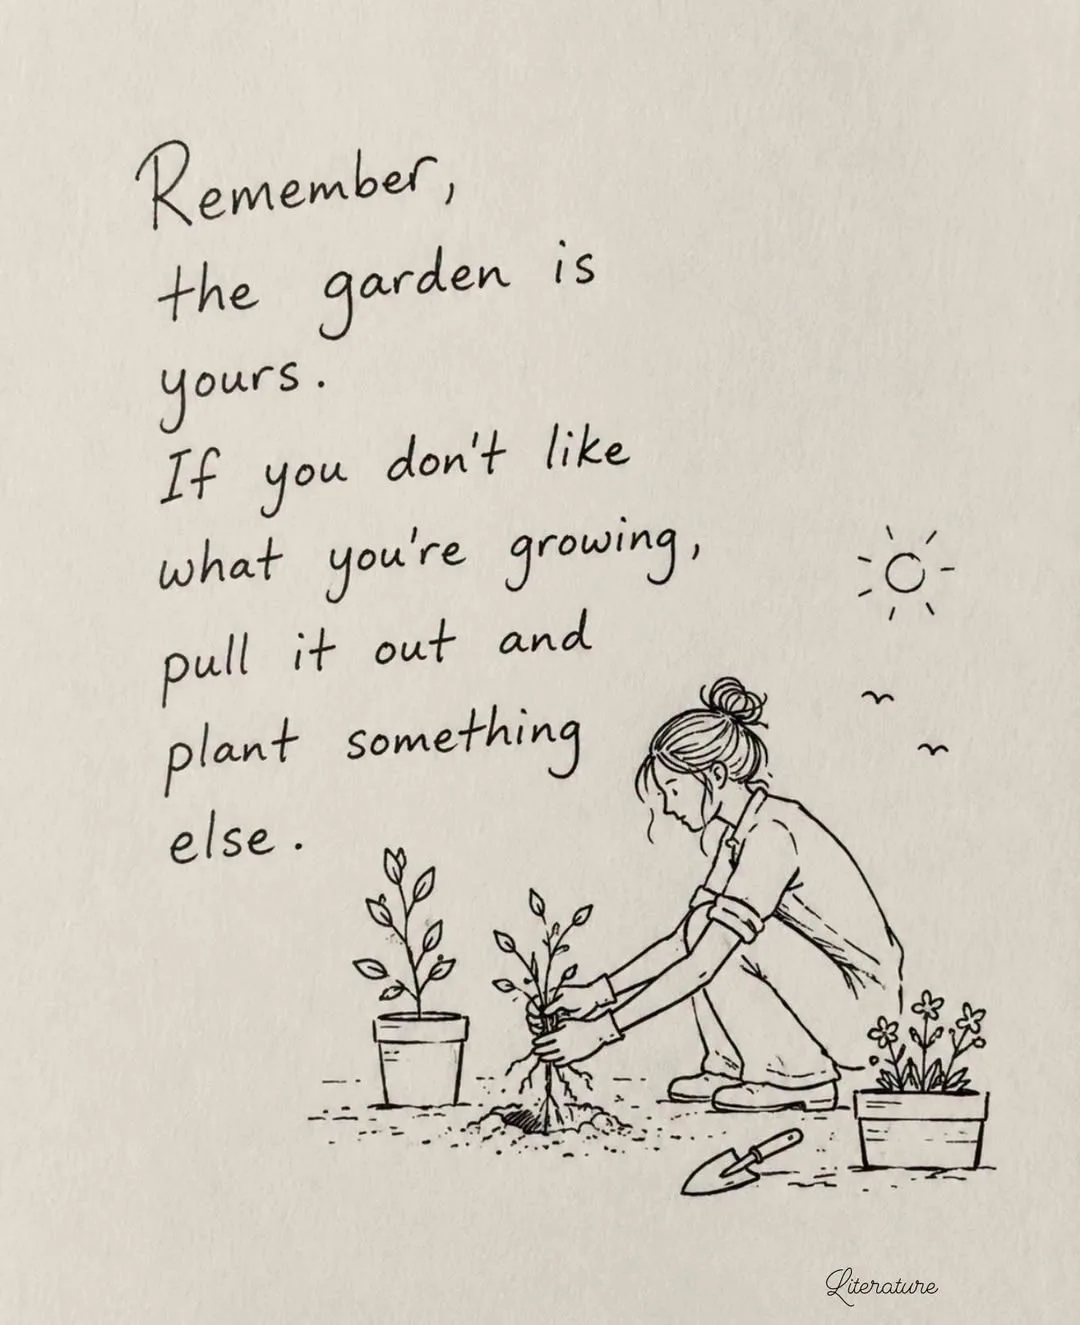 Remember,
the garden is
yours.
If you don't like
what you're growing,
pull it out and
plant something
else.
Literature